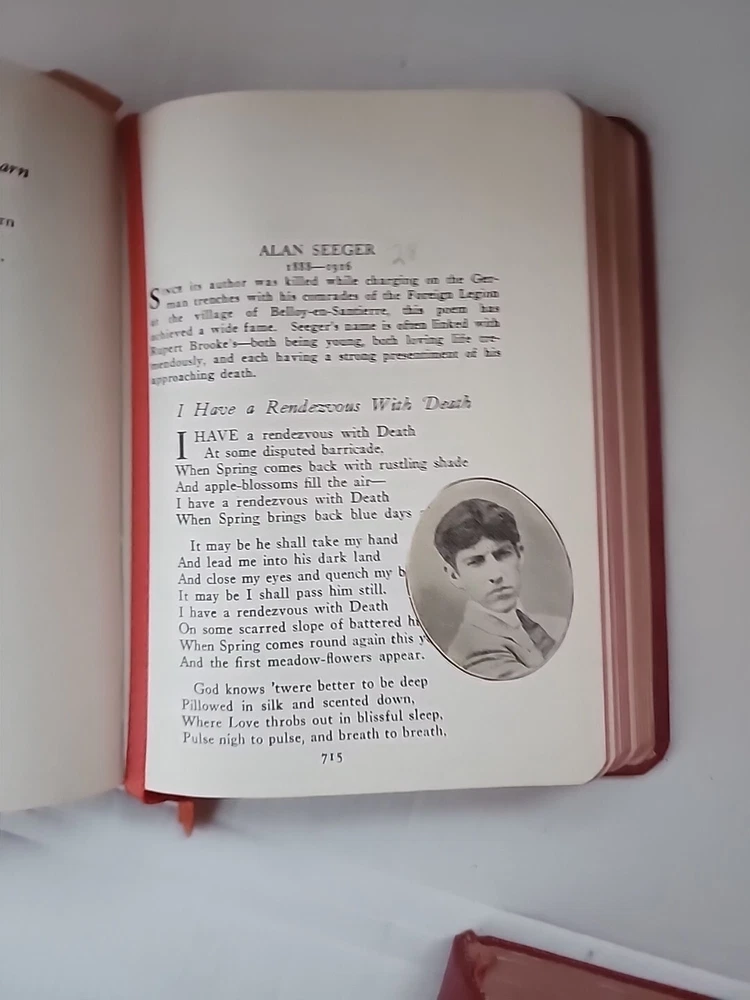 arn
rn
ALAN SEEGER
28
1888—1916
SINCE its author was killed while charging on the Ger-
man trenches with his comrades of the Foreign Legion
at the village of Belloy-en-Santerre, this poem has
achieved a wide fame. Seeger's name is often linked with
Rupert Brooke's—both being young, both loving life tre-
mendously, and each having a strong presentiment of his
approaching death.
I Have a Rendezvous With Death
I HAVE a rendezvous with Death
At some disputed barricade,
When Spring comes back with rustling shade
And apple-blossoms fill the air—
I have a rendezvous with Death
When Spring brings back blue days
It may be he shall take my hand
And lead me into his dark land
And close my eyes and quench my b
It may be I shall pass him still.
I have a rendezvous with Death
On some scarred slope of battered h
When Spring comes round again this y
And the first meadow-flowers appear.
God knows 'twere better to be deep
Pillowed in silk and scented down,
Where Love throbs out in blissful sleep,
Pulse nigh to pulse, and breath to breath,
715